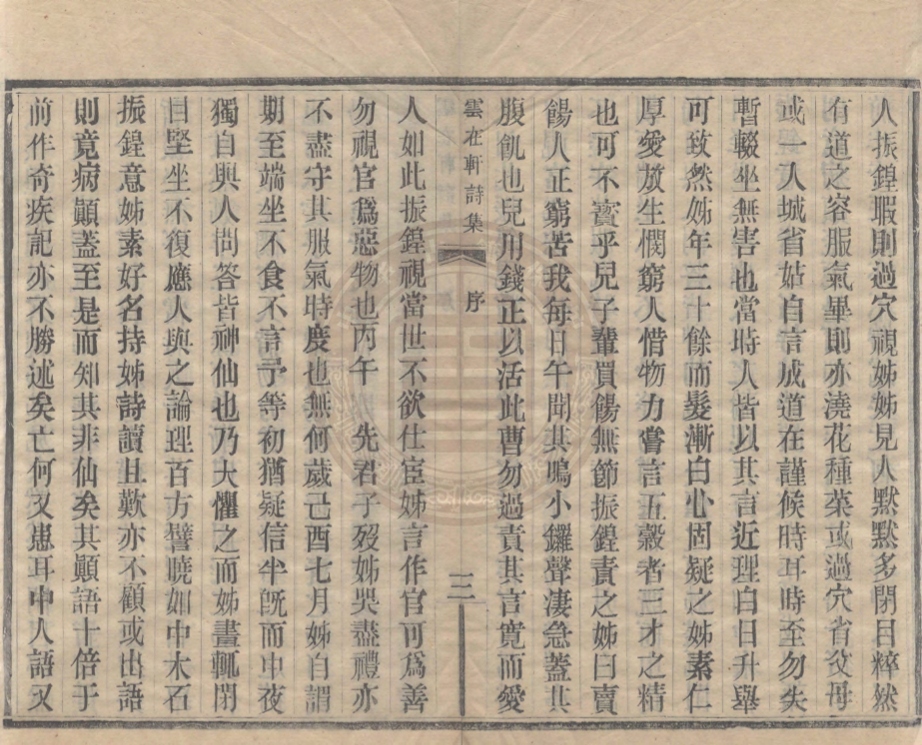 人振鍠暇則過穴視姊姊見人默默多閉目粹然
有道之容服氣畢則亦澆花種菜或過穴省父母
或一入城省姑自言成道在謹候時耳時至勿失
暫輟坐無害也當時人皆以其言近理白日升舉
可致然姊年三十餘而髮漸白心固疑之姊素仁
厚愛放生憫窮人惜物力嘗言五穀者三才之精
也可不寳乎兒子輩買餳無節振鍠責之姊曰賣
餳人正窮苦我每日午聞其鳴小鑼聲凄急蓋其
腹飢也兒用錢正以活此曹勿過責其言寛而愛
雲在軒詩集 序 三
人如此振鍠視當世不欲仕宦姊言作官可爲善
勿視官爲惡物也丙午 先君子歿姊哭盡禮亦
不盡守其服氣時度也無何歲己酉七月姊自謂
期至端坐不食不言予等初猶疑信半旣而中夜
獨自與人問答皆神仙也乃大懼之而姊晝輒閉
目堅坐不復應人與之論理百方譬曉如中木石
振鍠意姊素好名持姊詩讀且歎亦不顧或出語
則竟病顚蓋至是而知其非仙矣其顚語十倍于
前作奇疾記亦不勝述矣亡何又患耳中人語又